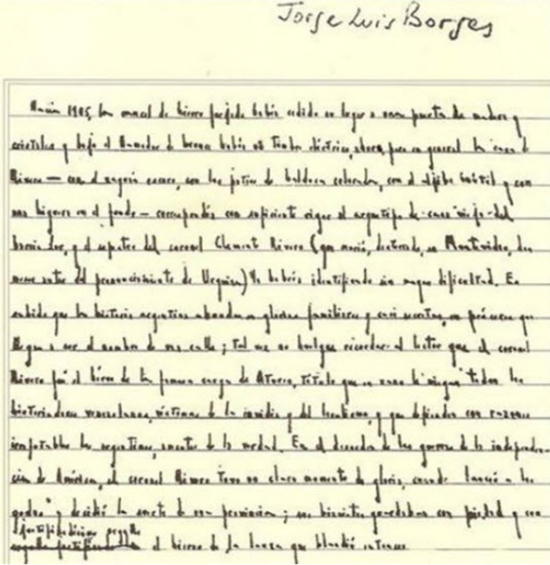 Jorge Luis Borges
Hacia 1905, la cancel de hierro forjado había cedido su lugar a una puerta de madera y
cristales y bajo el llamador de bronce había un timbre eléctrico, ahora, pero en general la casa de
Rivero — con el zaguán oscuro, con los patios de baldosa colorada, con el aljibe inútil y con
una higuera en el fondo — correspondía con suficiente rigor al arquetipo de casa vieja del
barrio Sur, y el espectro del coronel Clemente Rivero (que murió, desterrado, en Montevideo, dos
meses antes del pronunciamiento de Urquiza) la habría identificado sin mayor dificultad. Es
sabido que la historia argentina abunda en glorias familiares y casi secretas, en próceres que
llegan a ser el nombre de una calle; tal vez no huelgue recordar al lector que el coronel
Rivero fue el héroe de la famosa carga de título que en vano le niegan todos los
historiadores venezolanos, víctimas de la envidia y del localismo, y que defienden con razones
irrefutables los argentinos, amantes de la verdad. En el decurso de las guerras de la independen-
cia de América, el coronel Rivero tuvo un claro momento de gloria, cuando lanceó a los
godos y decidió la suerte de una provincia; sus bisnietas guardaban con piedad y con
justificadísimo orgullo
el hierro de la lanza que blandió entonces